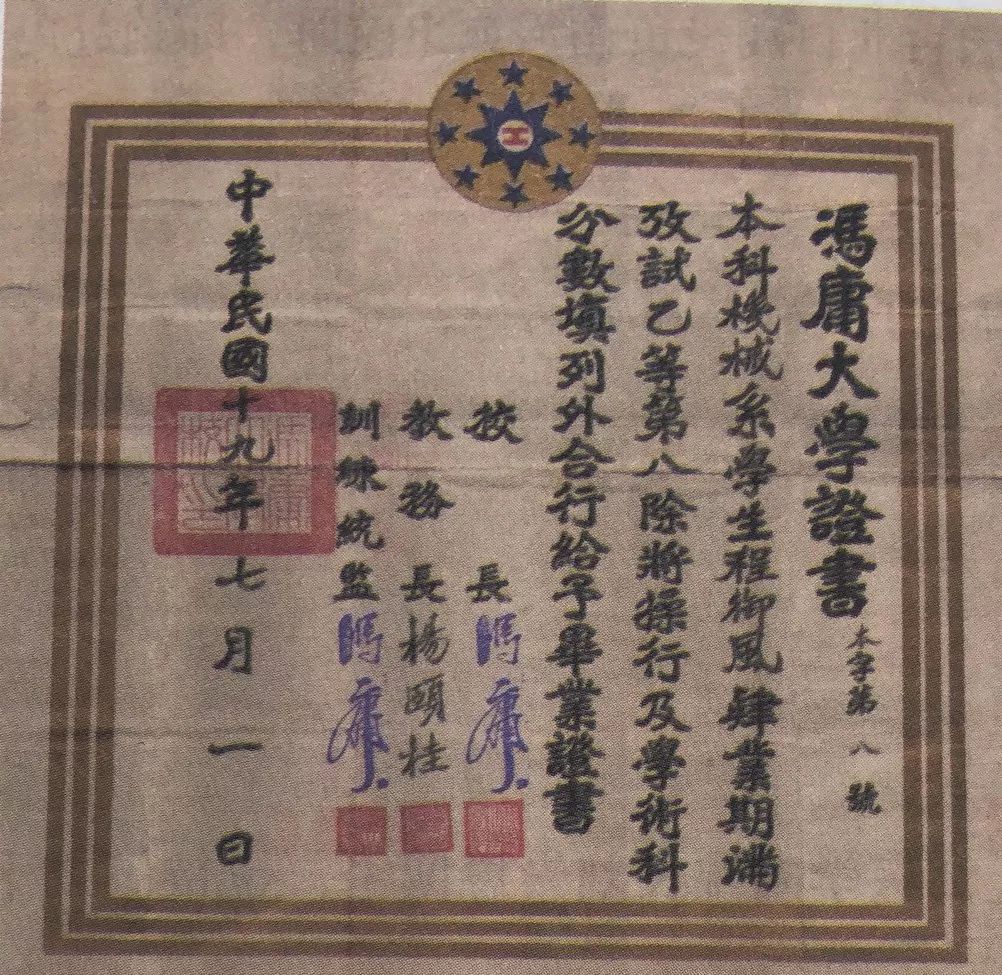 馮庸大學證書
本字第八號
本科機械系學生程御風肄業期滿
攷試乙等第八除將操行及學術科
分數填列外合行給予畢業證書
校長馮庸
教務長楊頤桂
訓練統監馮庸
中華民國十九年七月一日